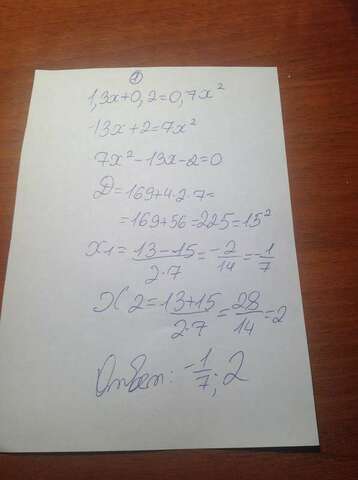 1
1,3x+0,2=0,7x²
13x+2=7x²
7x²-13x-2=0
D=169+4·2·7=
=169+56=225=15²
x1=\frac{13-15}{2·7}=\frac{-2}{14}=-\frac{1}{7}
x2=\frac{13+15}{2·7}=\frac{28}{14}=2
Ответ: -\frac{1}{7}; 2